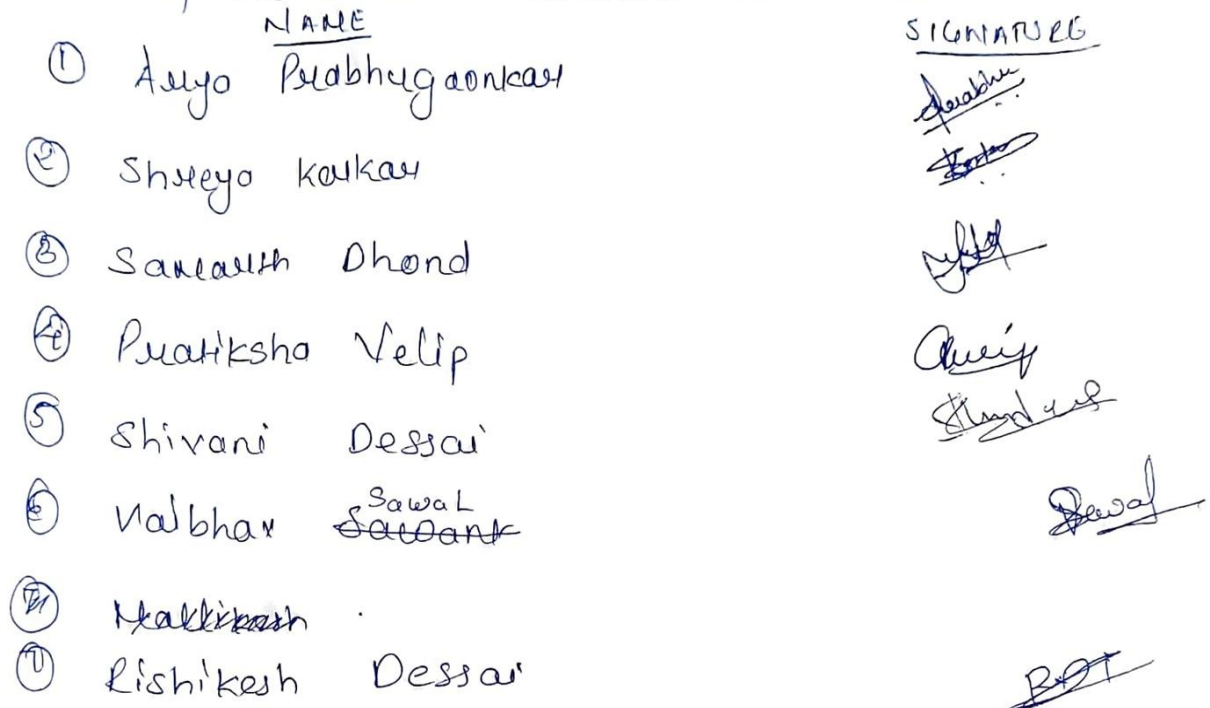 NAME SIGNATURE
① Arya Prabhugaonkar Prabhu
② Shreya Karkar
③ Samarth Dhond
④ Pratiksha Velip
⑤ Shivani Dessai
Sawal
⑥ Vaibhav Sawant Sawal
⑦ Rishikesh Dessai